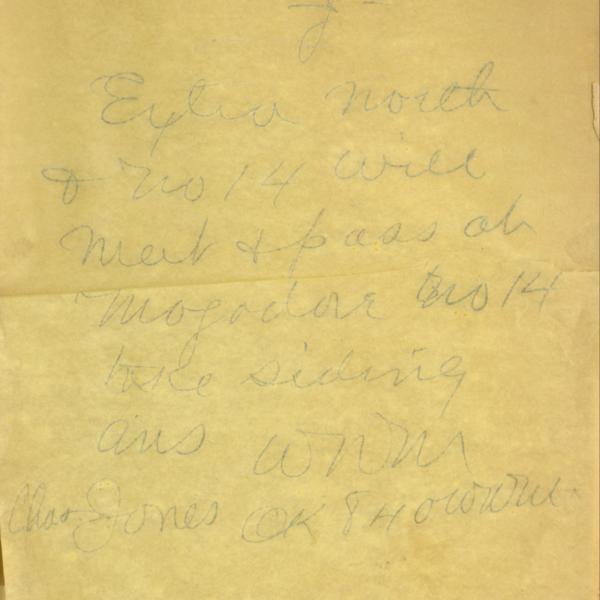 Extra north
& no 14 will
meet & pass at
Mogodore no 14
take siding
ans WNM
Chas Jones OK 840 WNM